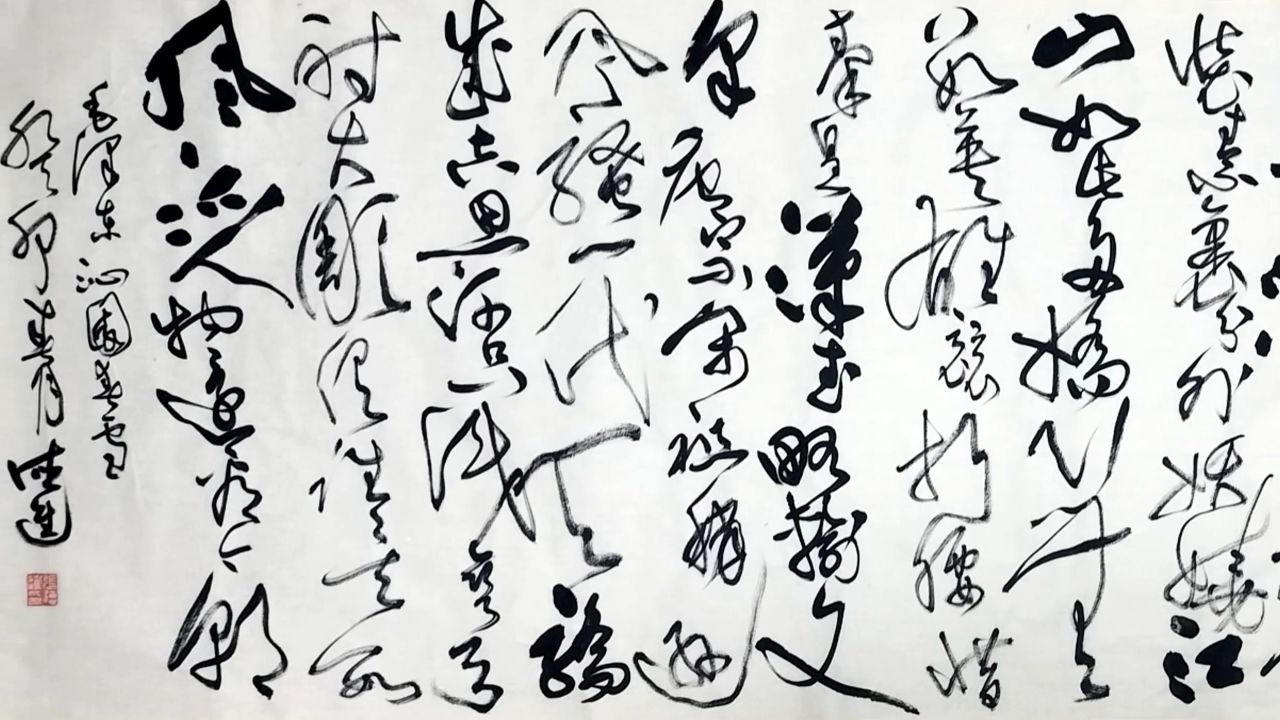 装素裹分外妖嬈江
山如此多嬌引無
數英雄競折腰惜
秦皇漢武略輸文
采唐宗宋祖稍遜
風騷一代天驕
成吉思汗只識彎弓
射大雕俱往矣數
風流人物還看今朝
毛澤東沁園春雪
癸卯春月